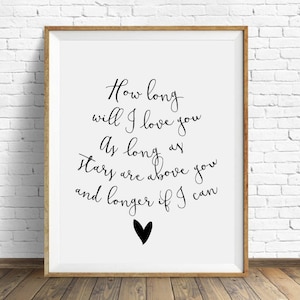 How long
will I love you
As long as
stars are above you
and longer if I can